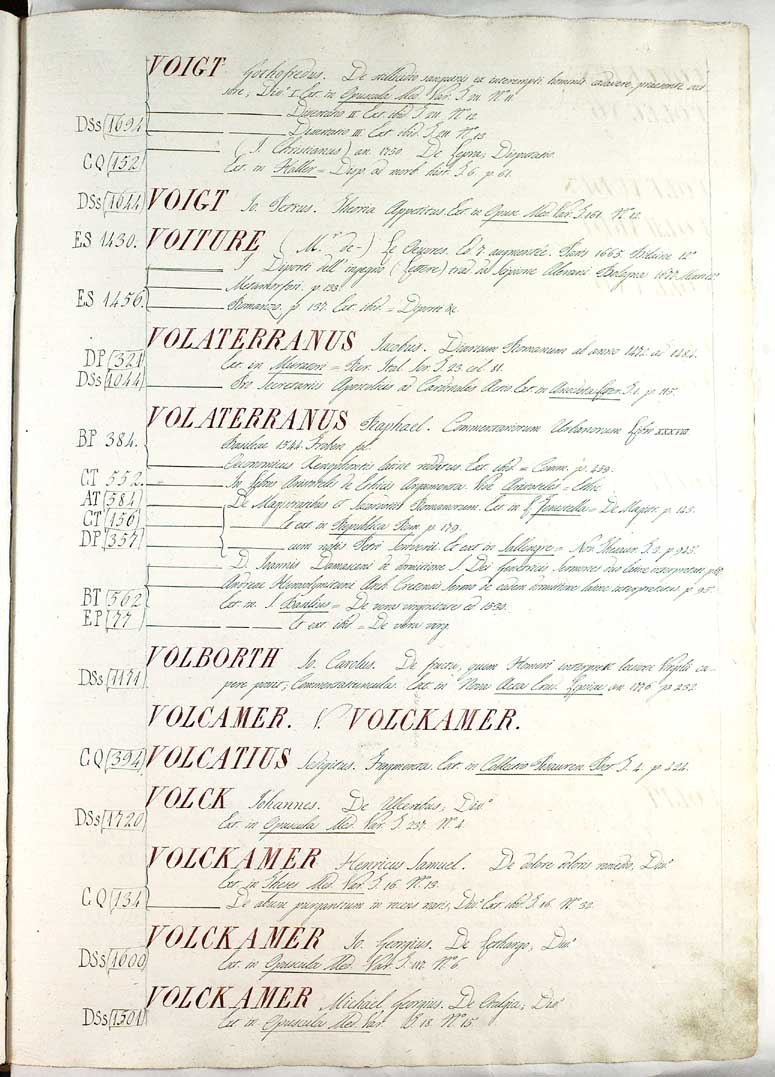 VOIGT Gothofredus. De stillicidio sanguinis ex interempti hominis cadavere praesente occi-
sore, Diss. I. Ext. in Opuscula Med. Var. T. 211. N.° 11.
Dissertatio II. Ext. ibid. T. 211. N.° 12.
DSs 1694 Dissertatio III. Ext. ibid. T. 211. N.° 13.
(J. Christianus) an. 1750. De Lepra; Disputatio.
CQ 152 Ext. in Haller = Disp. ad morb. hist. T. 6. p. 61.
DSs 1644 VOIGT Jo. Petrus. Theoria Appetitus. Ext. in Opusc. Med. Var. T. 161. N.° 12.
ES 1430. VOITURE (M.r de-) Le Oeuvres. Ed. 7. augmentée. Paris 1665. 12.°
I Diporti dell' ingegno (lettere) trad. da Scipione Alerani. Bologna 12.°
Metamorfosi. p. 133.
ES 1456. Romanzo. p. 137. Ext. ibid. = Diporti &c.
VOLATERRANUS Jacobus. Diarium Romanum ab anno 1472 ad 1484.
DP 321 Ext. in Muratori = Rer. Ital. Scr. T. 23. col. 81.
DSs 1044 Pro Secretariis Apostolicis ad Cardinales Actio. Ext. in Anecdota litter. T. 1. p. 115.
VOLATERRANUS Raphael. Commentariorum Urbanorum Libri XXXVIII
BP 384. Basileae 1544. Froben fol.
Oeconomicus Xenophontis latine redditus Ext. ibid. = Comm. p. 459.
CT 552. In libros Aristotelis de Ethicis Argumenta. Vide Aristoteles = Ethic.
AT 584 De Magistratibus et Sacerdotiis Romanorum. Ext. in L. Fenestella = De Magistr. p. 123.
CT 156 Et ext. in Respublica Rom. p. 179.
DP 357 cum notis Et ext. in Sallengre = Nov. Thesaur. T. 3. p. 945.
D. Joannis Damasceni de dormitione S. Dei Genitricis Sermones duo latine interpretati
Andreae Hierosolymitani Arch. Cretensis Sermo de eadem dormitione latine interpretatus. p. 95.
BT 562 Ext. in S. Basilius = De vera virginitate ed. 1534.
EP 77 Et ext. ibid. = De vera virg.
VOLBORTH Jo. Carolus. De fructu, quem Homeri interpres e lectione Virgilii ca-
DSs 1171 pere potest; Commentatiuncula. Ext. in Nova Acta Erud. Lipsiae an. 1776. p. 232.
VOLCAMER. V. VOLCKAMER.
CQ 394 VOLCATIUS Sedigitus. Fragmenta. Ext. in Collectio Pisauren. Poet. T. 4. p. 424.
VOLCK Johannes. De Ulceribus, Diss.
DSs 1720 Ext. in Opuscula Med. Var. T. 237. N.° 4.
VOLCKAMER Henricus Samuel. De dolore doloris remedio, Diss.
Ext. in Theses Med. Var. T. 16. N.° 13.
CQ 134 De abusu purgantium in recens natis, Diss. Ext. ibid. T. 16. N.° 32.
VOLCKAMER Jo. Georgius. De Lethargo, Diss.
DSs 1600 Ext. in Opuscula Med. Var. T. 117. N.° 6.
VOLCKAMER Michael Georgius. De Otalgia, Diss.
DSs 1501 Ext. in Opuscula Med. Var. T. 18. N.° 15.